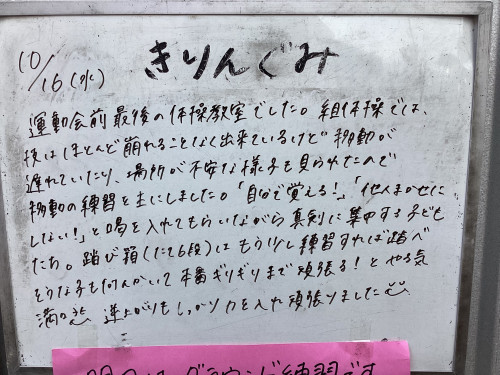 10/16(水) きりんぐみ
運動会前最後の体操教室でした。組体操では、
技はほとんど崩れることなく出来ているけど移動が
遅れていたり、場所が不安な様子も見られたので
移動の練習を主にしました。「自分で覚える!」「他人まかせに
しない!」と喝を入れてもらいながら真剣に集中する子ども
たち。踏び箱(たて6段)はもう少し練習すれば跳べ
そうな子も何人かいて本番ギリギリまで頑張る!とやる気
満々 逆上がりもしっかり力を入れ頑張りました
明日は、グラウンド練習です